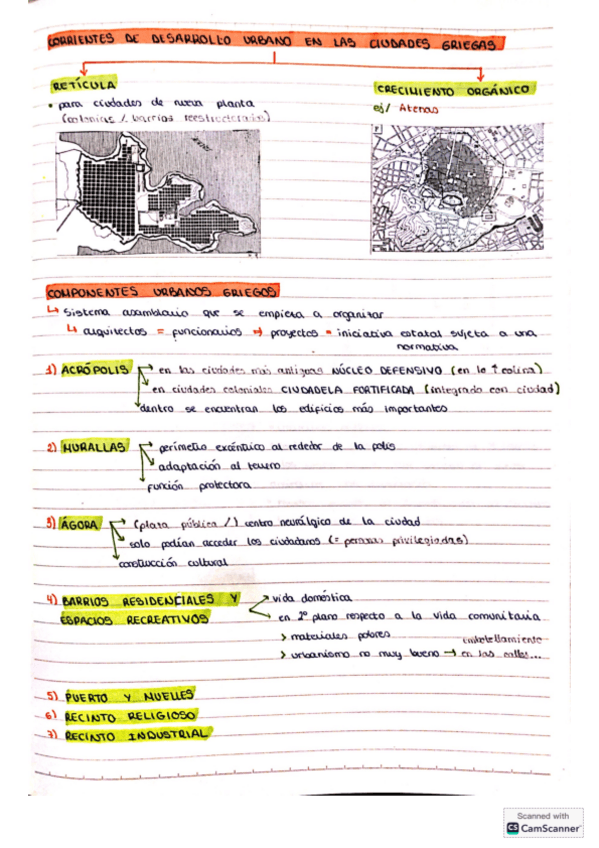 CORRIENTES DE DESARROLLO URBANO EN LAS CIUDADES GRIEGAS.
RETÍCULA
• para ciudades de nueva planta
(colonias / barrios reestructurados)
CRECIMIENTO ORGÁNICO
ej/ Atenas
COMPONENTES URBANOS GRIEGOS
↳ Sistema asambleario que se empieza a organizar
↳ arquitectos = funcionarios ⇒ proyectos = iniciativa estatal sujeta a una
normativa
1) ACRÓPOLIS → en las ciudades más antiguas NÚCLEO DEFENSIVO (en lo ↑ colina)
en ciudades coloniales CIUDADELA FORTIFICADA (integrado con ciudad)
dentro se encuentran los edificios más importantes
2) MURALLAS → perímetro excéntrico al rededor de la polis
adaptación al terreno
función protectora
3) ÁGORA → (plaza pública /) centro neurálgico de la ciudad
solo podían acceder los ciudadanos (= personas privilegiadas)
construcción cultural
4) BARRIOS RESIDENCIALES Y
ESPACIOS RECREATIVOS
vida doméstica
en 2º plano respecto a la vida comunitaria
> materiales pobres
> urbanismo no muy bueno → en las calles...
embotellamiento
5) PUERTO Y MUELLES
6) RECINTO RELIGIOSO
7) RECINTO INDUSTRIAL
Scanned with
CS CamScanner